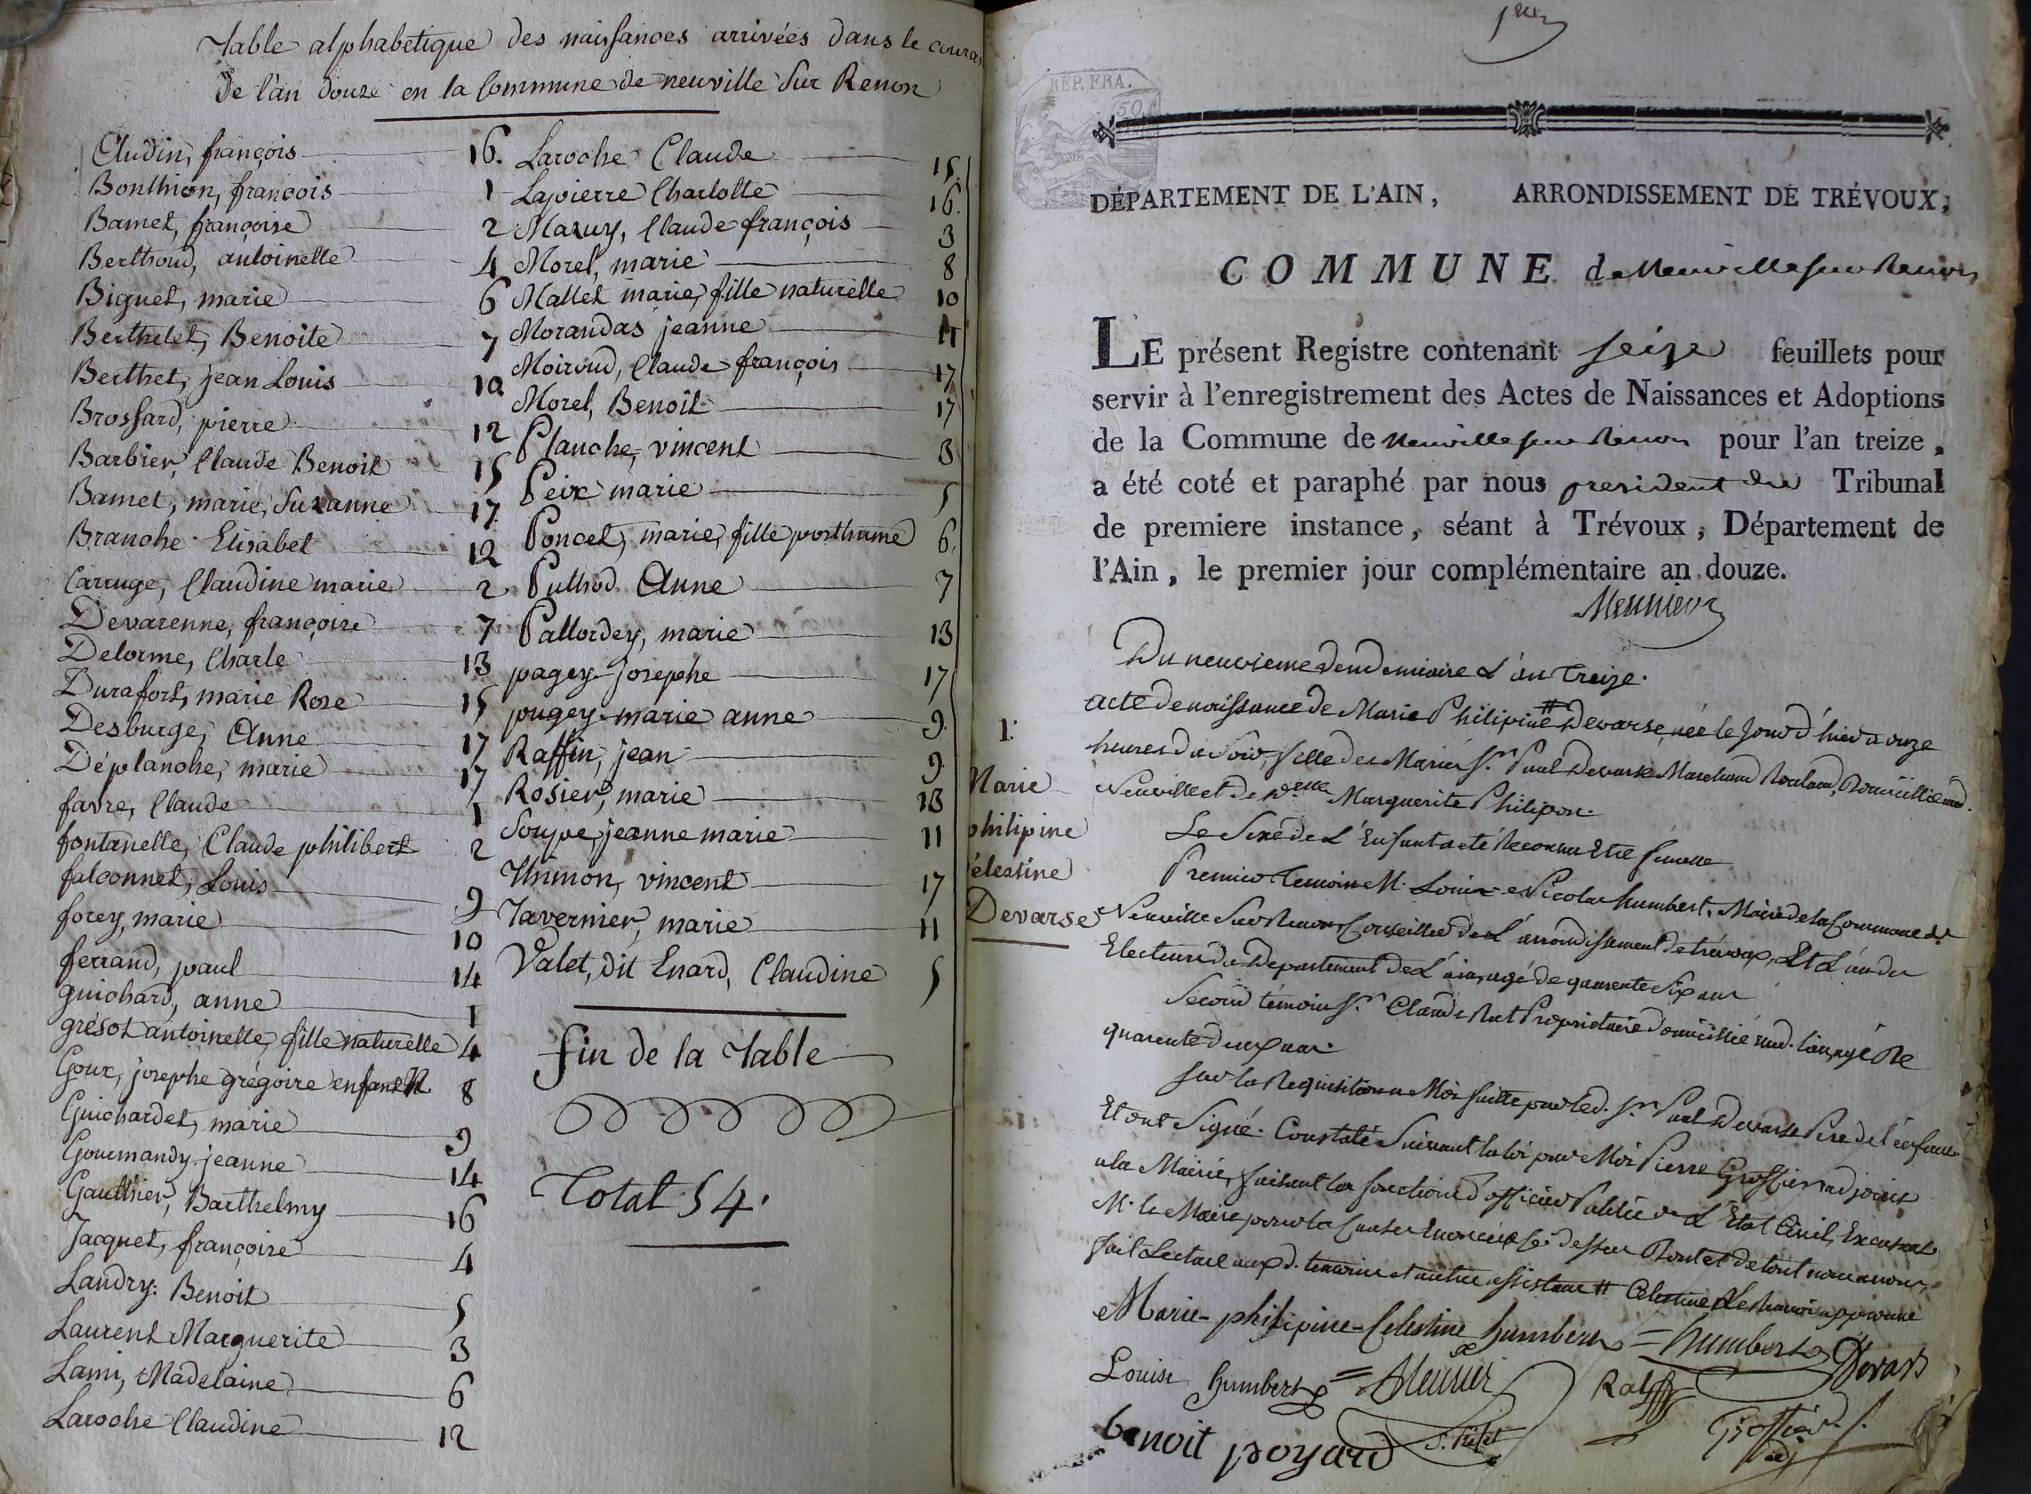 Table alphabetique des naissances arrivées dans le courant
De l'an douze en la Commune de neuville Sur Renon
Audin, françois 16.
Bonthion, françois 1
Bamet, françoise 2
Berthoud, antoinette 4
Biguet, marie 6
Berthelet, Benoite 7
Berthet, jean Louis 10
Brossard, pierre 12
Barbier, Claude Benoit 15
Bamet, marie, Suzanne 17
Branche Elisabet 12
Carruge, Claudine marie 2
Devarenne, françoise 7
Delorme, Charle 13
Durafort, marie Rose 15
Desburge, Anne 17
Déplanche, marie 17
favre, Claude 1
fontanelle, Claude philibert 2
falconnet, Louis 9
forey, marie 10
ferrand, paul 14
guichard, anne 1
grésot antoinette, fille naturelle 4
Goux, josephe grégoire enfant N 8
Guichardet, marie 9
Gourmandy jeanne 14
Gauthier, Barthelmy 16
Jacquet, françoise 4
Landry: Benoit 5
Laurent Marguerite 3
Lami, Madelaine 6
Laroche Claudine 12
Laroche Claude 15.
Lapierre Charlotte 16.
Mazuy, Claude françois 3
Morel, marie 8
Mallet marie, fille naturelle 10
Morandas jeanne 11
Moiroud, Claude françois 17
Morel, Benoit 17
Planche, vincent 3
Peix marie 5
Poncet, marie, fille posthume 6.
Puthod Anne 7
Pallordey, marie 13
pagey josephe 17
pugey marie anne 9.
Raffin, jean 9
Rosier, marie 13
Soupe, jeanne marie 11
Thimon, vincent 17
Tavernier, marie 11
Valet, dit Enard, Claudine 5
fin de la Table
Total 54.
REP. FRA.
DÉPARTEMENT DE L'AIN, ARRONDISSEMENT DE TRÉVOUX,
COMMUNE de Neuville sur Renon
LE présent Registre contenant seize feuillets pour
servir à l'enregistrement des Actes de Naissances et Adoptions
de la Commune de Neuville sur Renon pour l'an treize,
a été coté et paraphé par nous president du Tribunal
de premiere instance, séant à Trévoux, Département de
l'Ain, le premier jour complémentaire an douze.
1.
Marie
philipine
célestine
Devarse
Du neuvieme Vendemiaire L'an Treize.
acte de naissance de Marie Philipine # Devarse, née le jour d'hier a onze
heures du Soir, fille des Mariés Sr. Paul Devarse Marchand Roulant, Domicilié aud.
Neuville et de Delle Marguerite Philipon.
Le Sexe de L'Enfant a été Reconnu Etre femelle
Premier temoin M. Louis Nicolas humbert, Maire de la Commune de
Neuville Sur Renon Conseiller de L'arrondissement de trévoux, Et L'un des
Electeurs du Departement de L'ain, agé de quarente Six ans
Second témoin Sr. Claude Rat Proprietaire domicilié aud. lieu, agé De
quarente deux ans.
sur la Requisition a Moi faitte par led. Sr. Paul Devarse Pere de l'enfant
Et ont Signé. Constaté Suivant la loi par Moi Pierre Groffier adjoint
a la Mairie, faisant les fonctions d'officier Public de L'Etat Civil, En
M. le Maire pour la Cause Enoncée Ci dessus Dont et de tout nous avons
fait Lecture auxd. temoins et autres assistans # Celestine
Marie-philipine-Celestine humbert = humbert Devars
Louise humbert = Meunier Rat
benoit poyard Groffier
adj